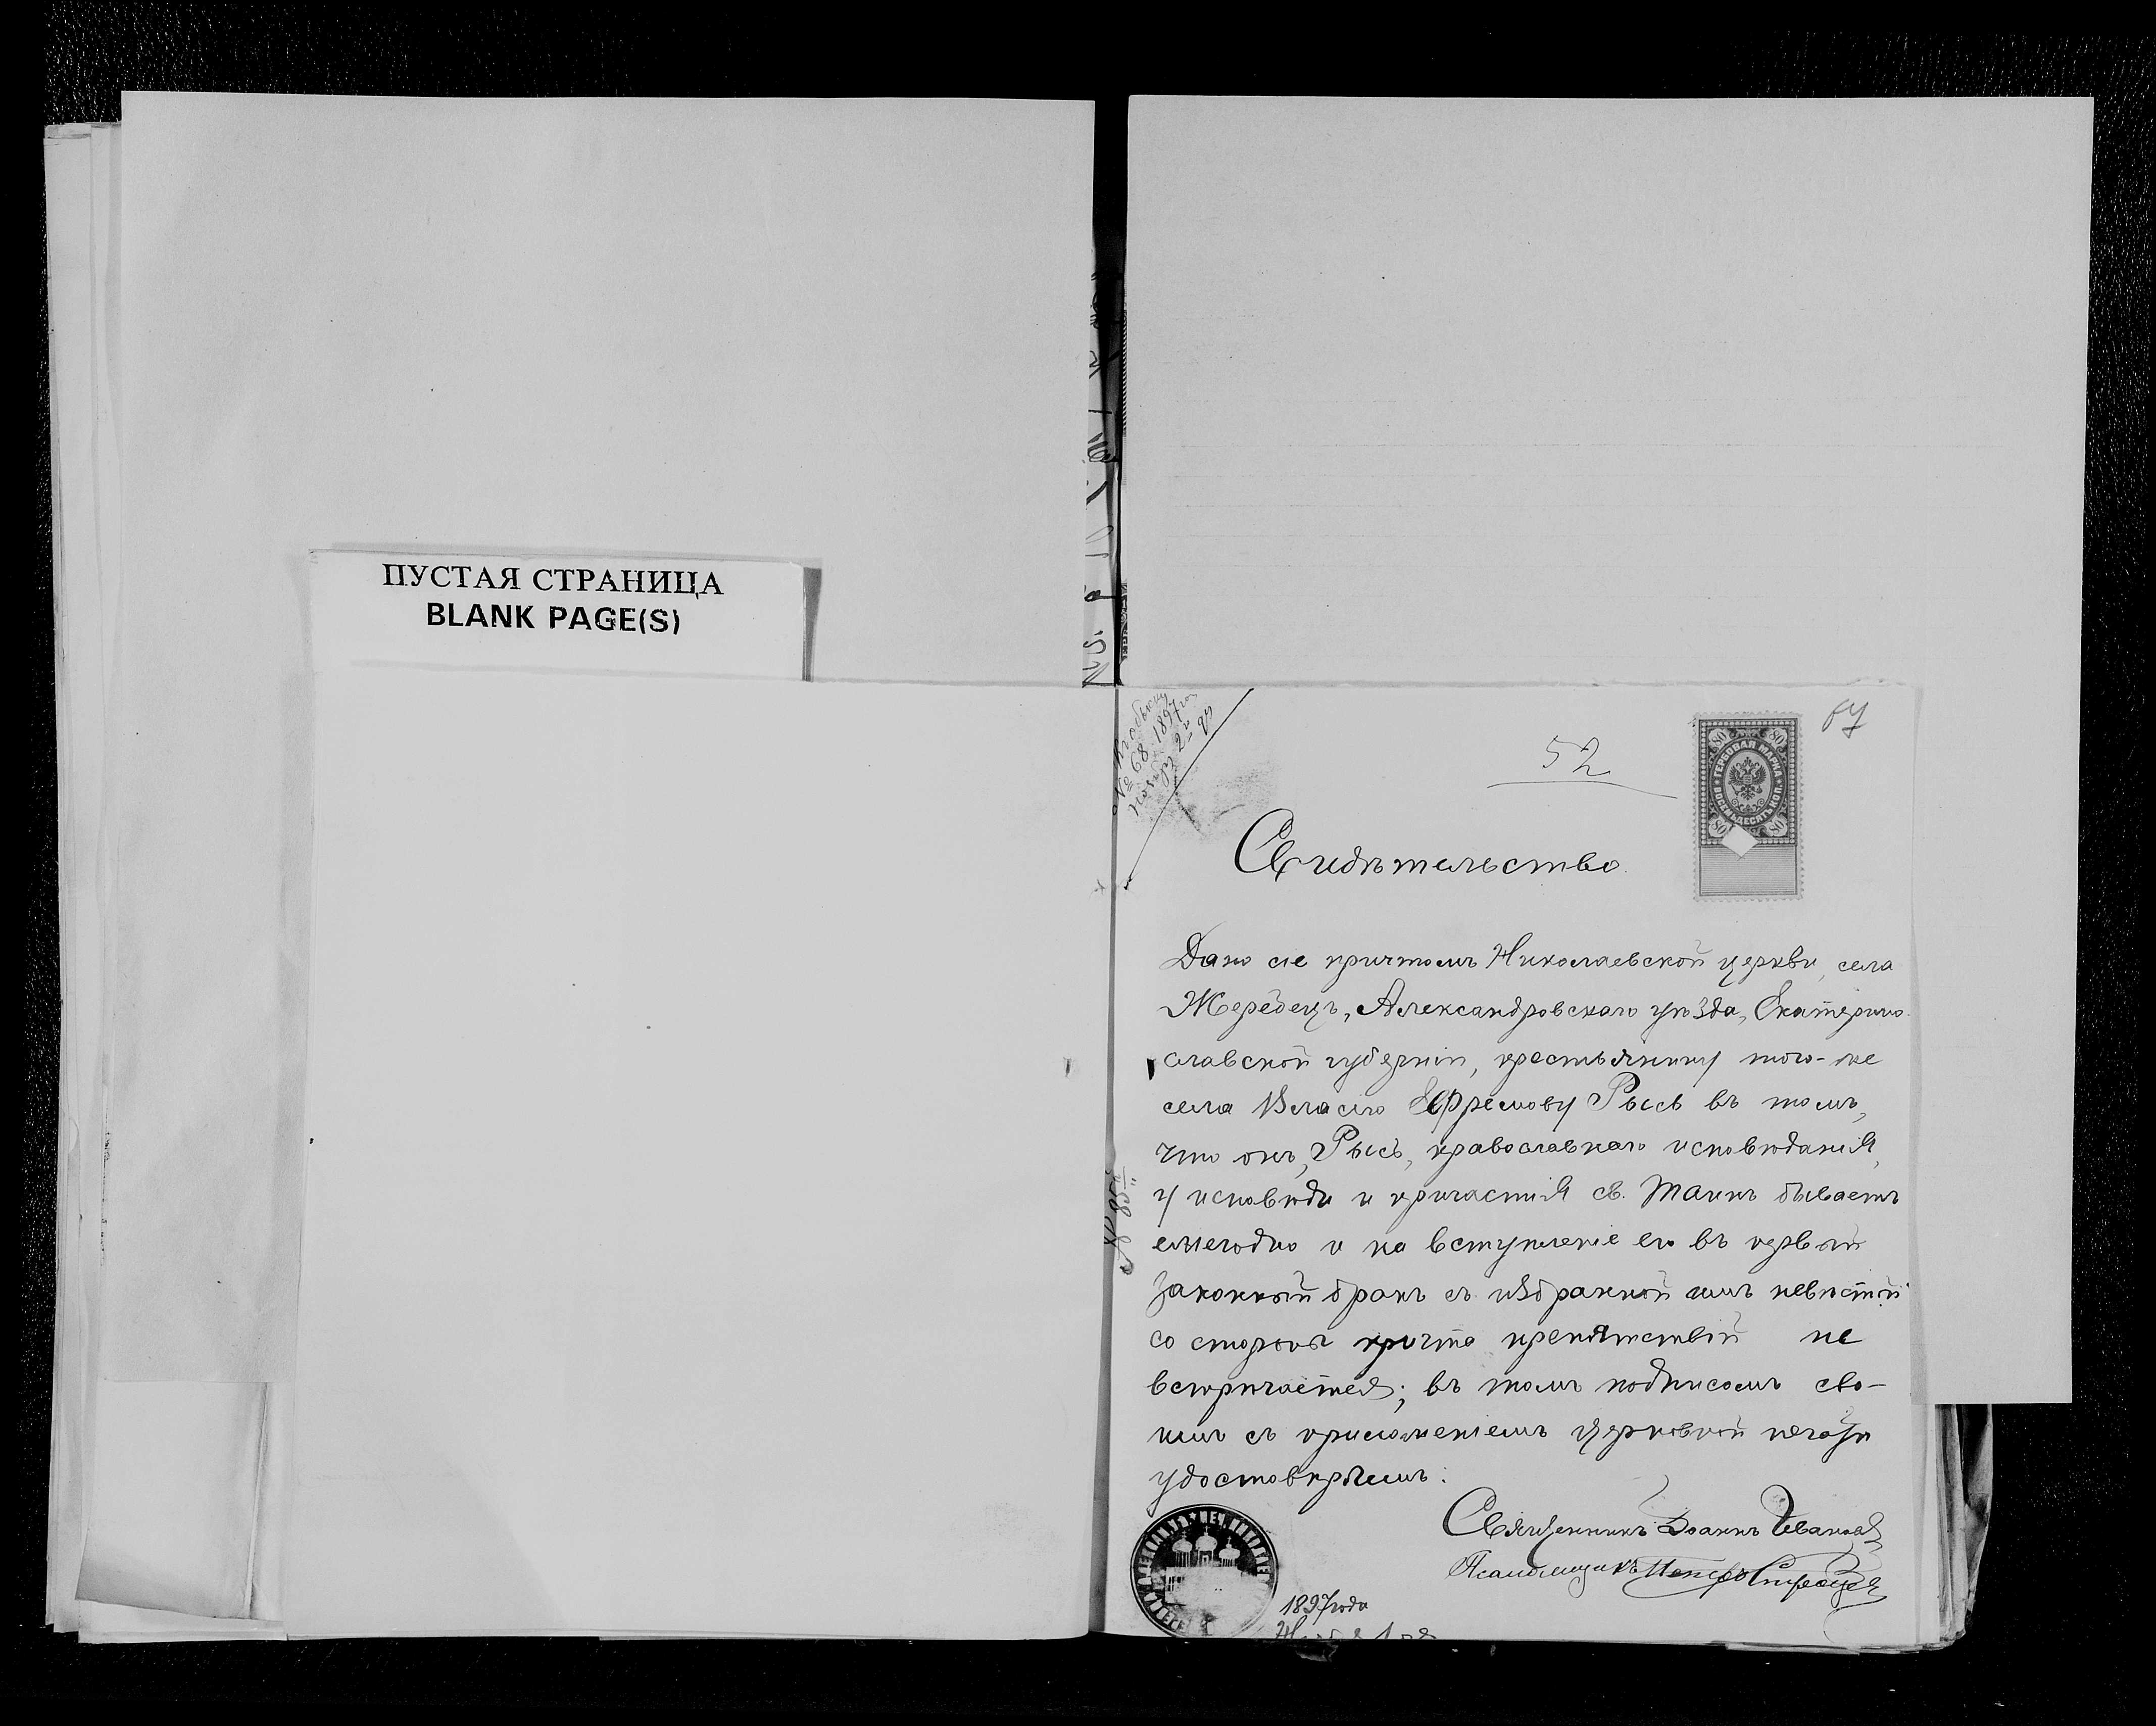 ПУСТАЯ СТРАНИЦА
BLANK PAGE(S)
№ 68 1897 го
52
80 80
ГЕРБОВАЯ МАРКА
ВОСЕМЬДЕСЯТЪ КОП.
80 80
Свидѣтельство.
Дано сіе причтомъ Николаевской церкви, села
Жеребецъ, Александровскаго уѣзда, Екатерино-
славской губерніи, крестьянину того-же
села Власію Ефремову Рысь въ томъ,
что онъ, Рысь, православнаго исповѣданія,
у исповѣди и причастія св. Таинъ бываетъ
ежегодно и на вступленіе его въ первый
законный бракъ съ избранной имъ невѣстой
со стороны причта препятствій не
встрѣчается; въ томъ подписомъ сво-
имъ съ приложеніемъ церковной печати
удостовѣряемъ.
№ 85
Священникъ Іоаннъ Ивановъ
Псаломщикъ Петръ
1897 года